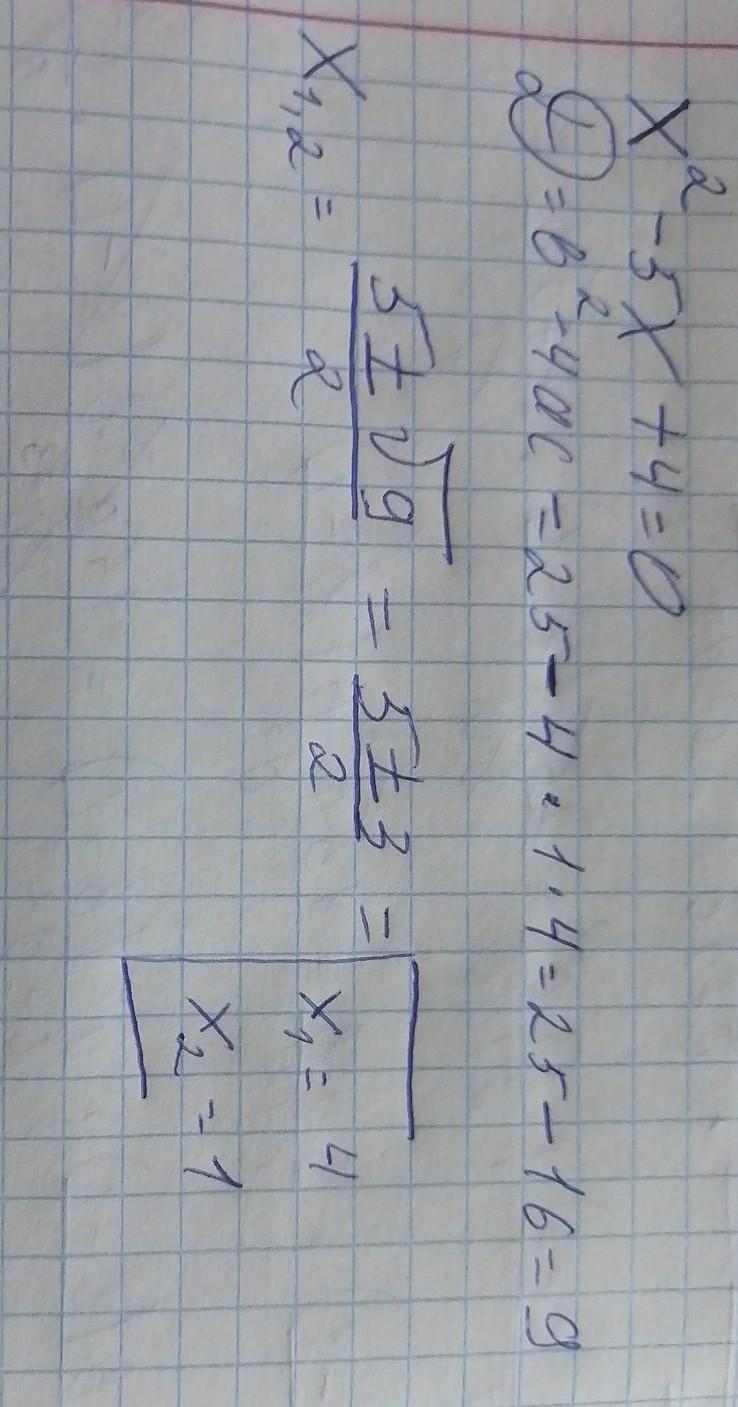 x² - 5x + 4 = 0
D = b² - 4ac = 25 - 4 · 1 · 4 = 25 - 16 = 9
x₁,₂ = (5 ± √9)/2 = (5 ± 3)/2 = [x₁ = 4
x₂ = 1